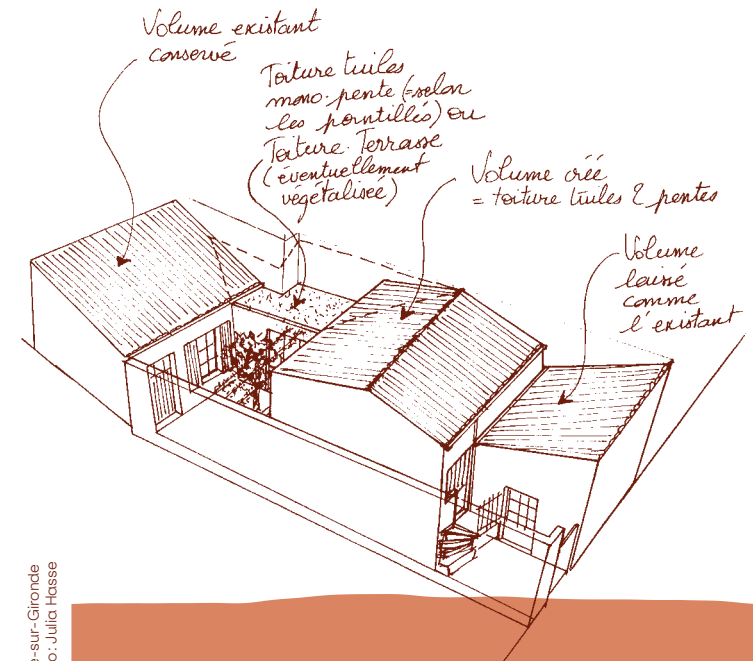 Volume existant
conservé
Toiture tuiles
mono-pente (=selon
les pointillés) ou
Toiture-Terrasse
(éventuellement
végétalisée)
Volume créé
= toiture tuiles 2 pentes
Volume
laissé
comme
l'existant
e-sur-Gironde
o: Julia Hasse